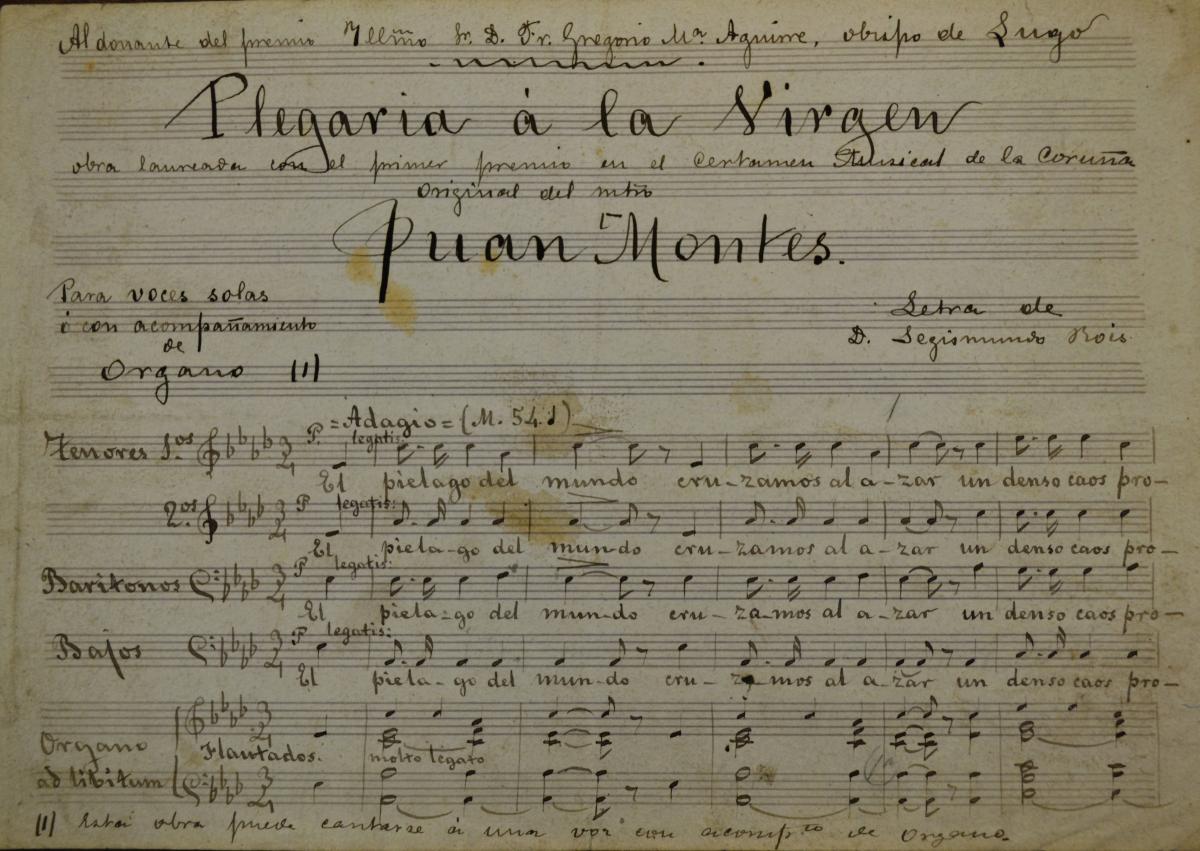 Al donante del premio Yllmo Sr. D. Fr. Gregorio Mª Aguirre, obispo de Lugo
Plegaria á la Virgen
obra laureada con el primer premio en el Certamen Musical de la Coruña
original del mtro
Juan Montes.
Para voces solas
ó con acompañamiento
de
Organo (1)
Letra de
D. Segismundo Rois
=Adagio= (M. 54.♩)
Tenores 1.os P. legatis:
El pielago del mundo cru-zamos al a-zar un denso caos pro-
2.os P legatis:
El piela-go del mun-do cru-zamos al a-zar un denso caos pro-
Baritonos P legatis:
El piela-go del mun-do cru-za-mos al a-zar un denso caos pro-
Bajos P legatis:
El piela-go del mun-do cru-za-mos al a-zar un denso caos pro-
Organo
ad libitum
Flautados.
molto legato
(1) Esta obra puede cantarse á una voz con acompto de Organo.